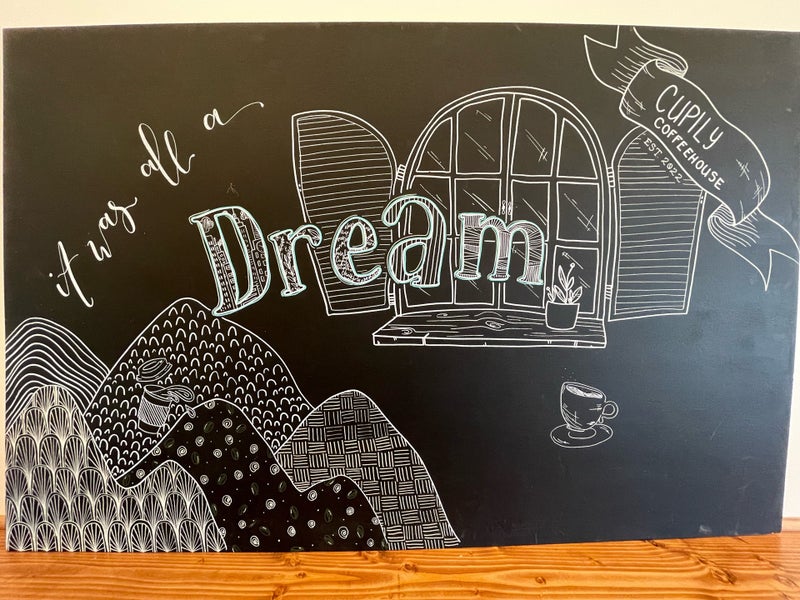 it was all a
Dream
CUPILY
COFFEEHOUSE
EST 2022